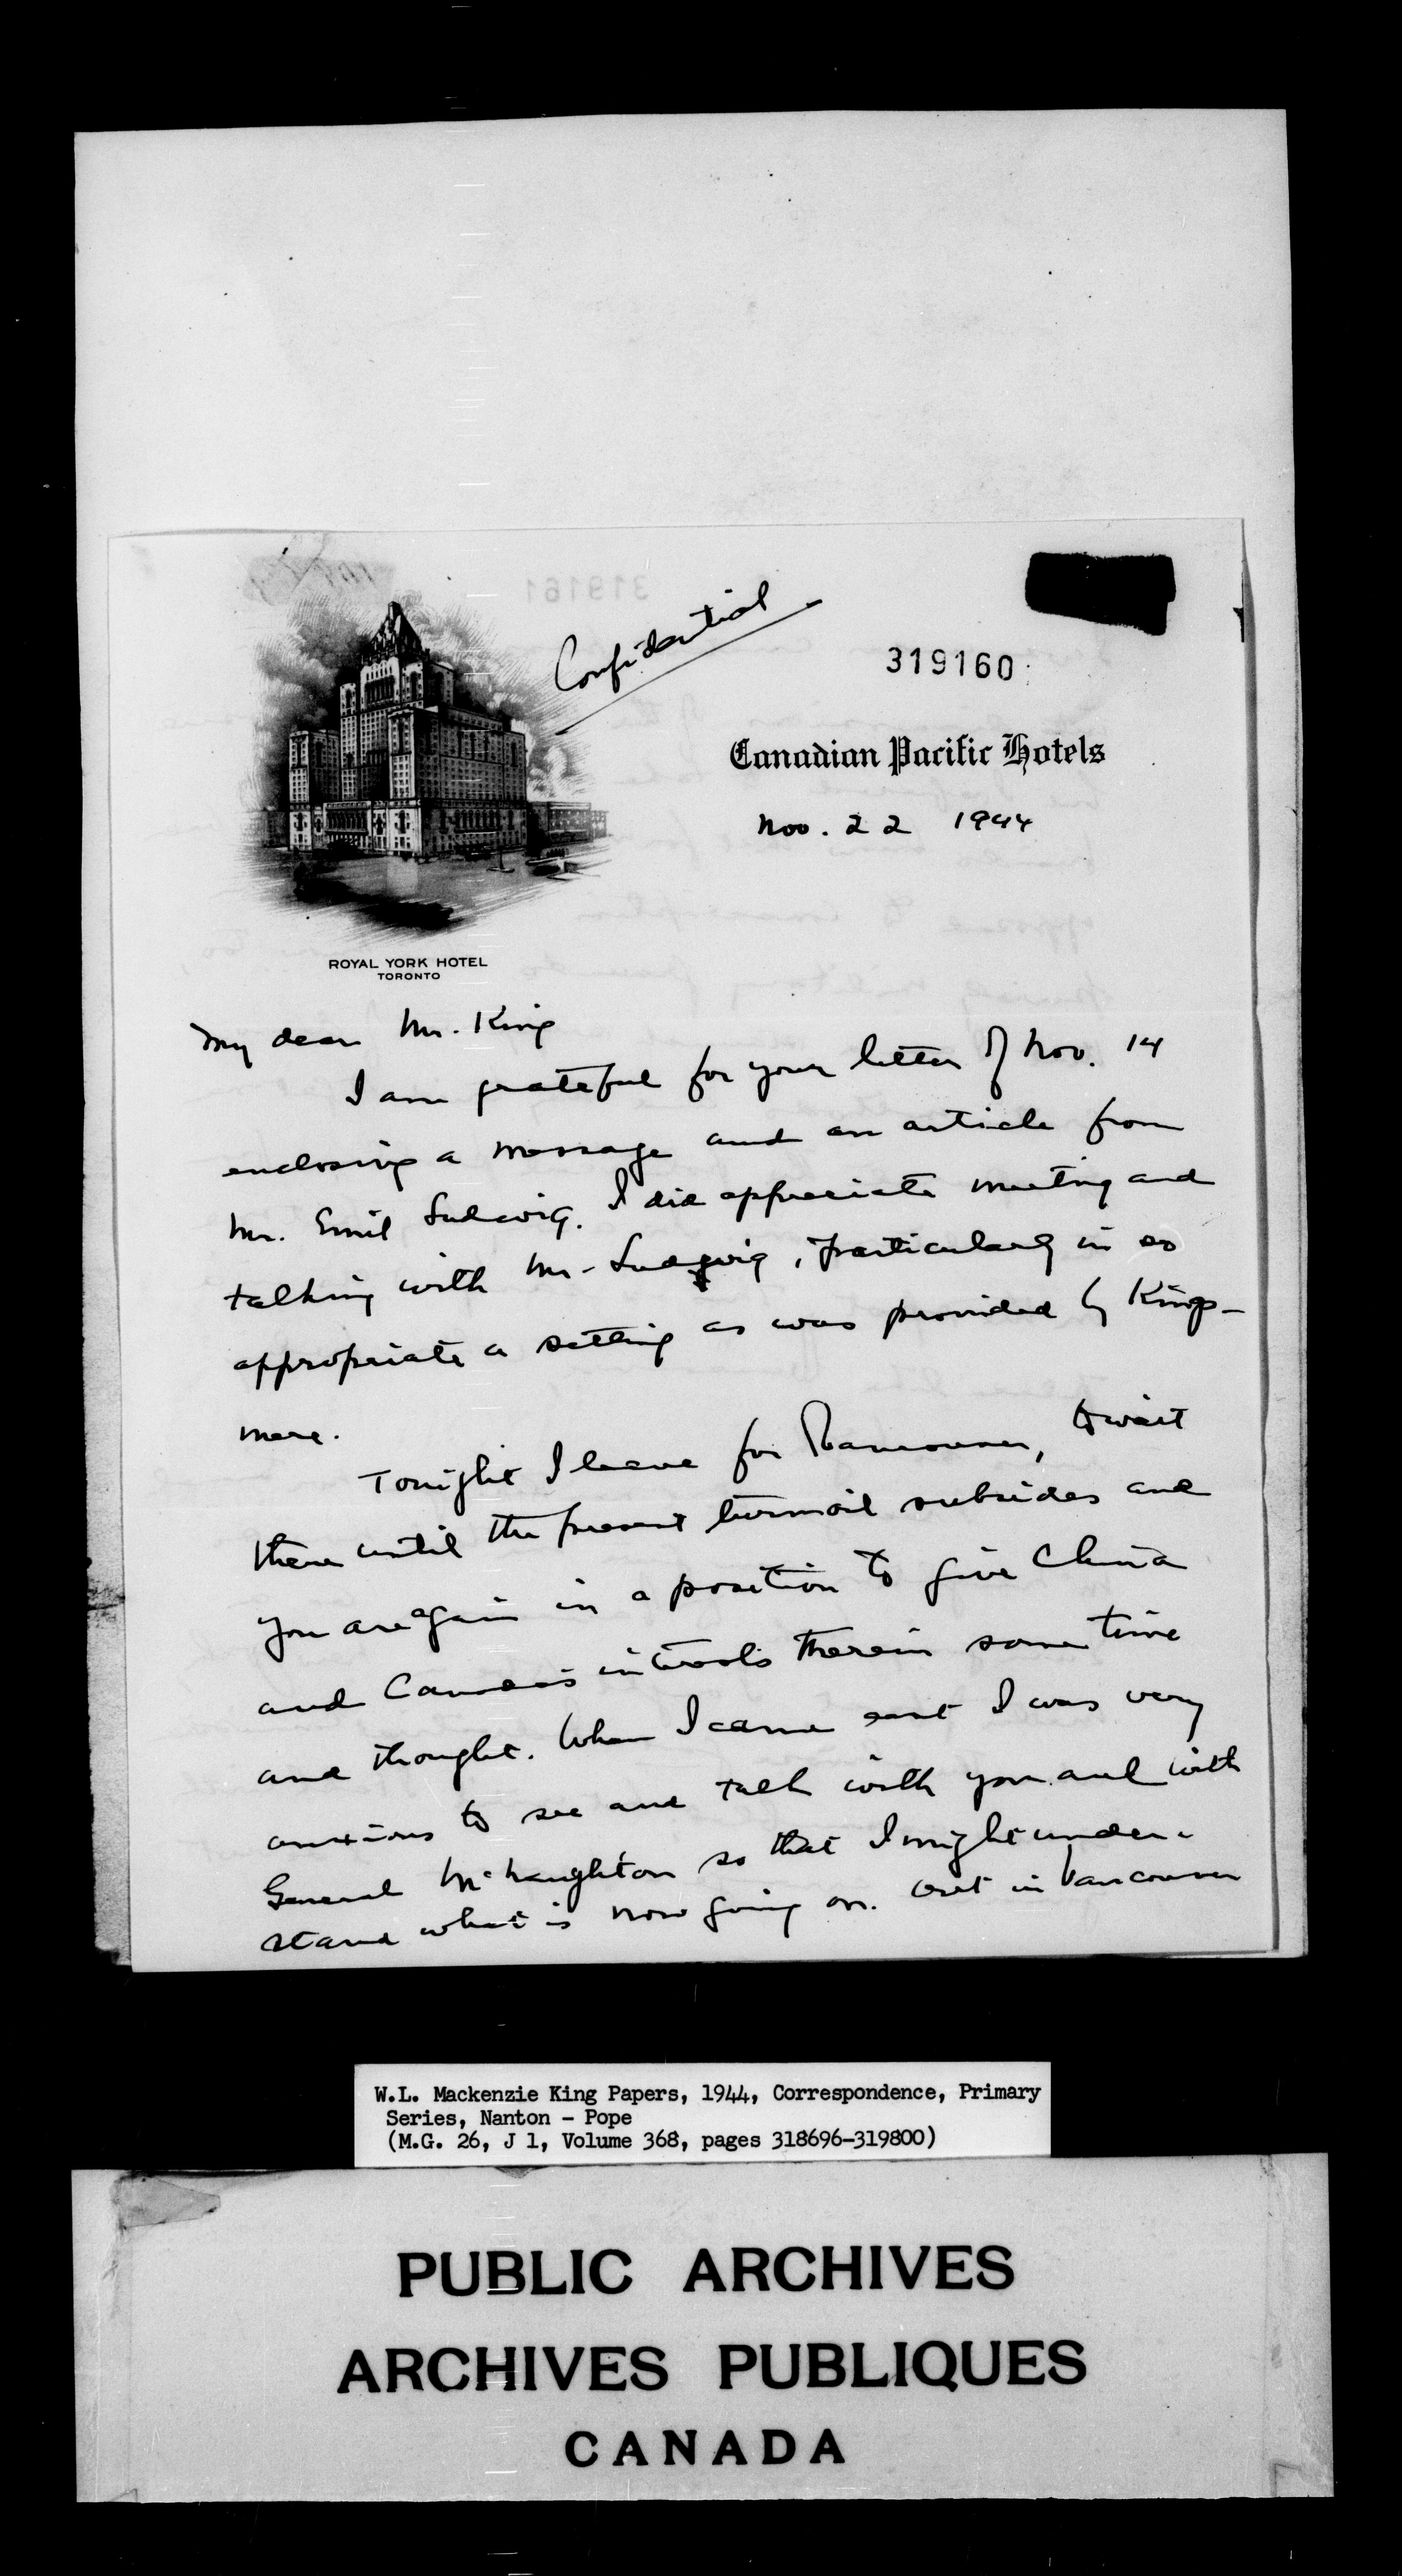 Confidential
319160
Canadian Pacific Hotels
Nov. 22 1944
ROYAL YORK HOTEL
TORONTO
My dear Mr. King
I am grateful for your letter of Nov. 14
enclosing a message and an article from
Mr. Emil Ludwig. I did appreciate meeting and
talking with Mr. Ludwig, particularly in so
appropriate a setting as was provided by Kings-
mere.
Tonight I leave for Vancouver, to wait
there until the present turmoil subsides and
you are again in a position to give China
and Canada's interests therein some time
and thought. When I came east I was very
anxious to see and talk with you and with
General McNaughton so that I might under-
stand what is now going on. Out in Vancouver
W.L. Mackenzie King Papers, 1944, Correspondence, Primary
Series, Nanton - Pope
(M.G. 26, J 1, Volume 368, pages 318696-319800)
PUBLIC ARCHIVES
ARCHIVES PUBLIQUES
CANADA